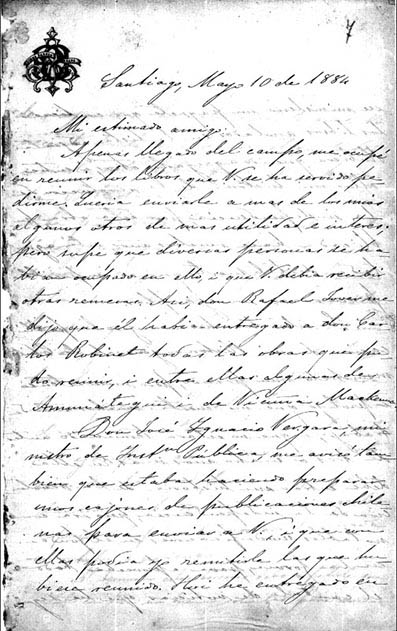 7
Santiago, Mayo 10 de 1884
Mi estimado amigo.
Apenas llegado del campo, me ocupé
en reunir los libros que V. se ha servido pe-
dirme. Queria enviarle a mas de los mios
algunos otros de mas utilidad e interes.
pero supe que diversas personas se ha-
bian ocupado en ello, i que V. debia recibir
otras remesas. Asi, don Rafael Jover me
dijo que él habia entregado a don Car-
los Robinet todas las obras que pu-
do reunir, i entre ellas algunas de
Amunátegui i de Vicuña Mackenna.
Don José Ygnacio Vergara, mi-
nistro de Instⁿ Publica, me avisó tam-
bien que estaba haciendo preparar
unos cajones de publicaciones chile-
nas para enviar a V. i que con
ellas podia yo remitirle las que hu-
biese reunido. Hoi he entregado en